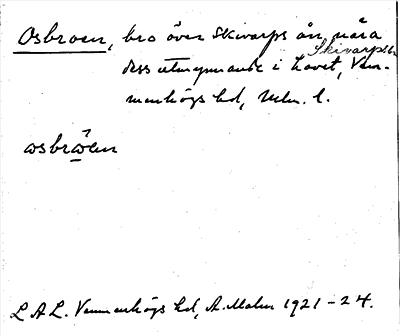 Osbroen, bro över Skivarps ån, nära
Skivarps
dess utmynnande i havet, Vem-
menhögs hd, Mlm. l.
osbröen
L A L. Vemmenhögs hd, A. Malm 1921-24.